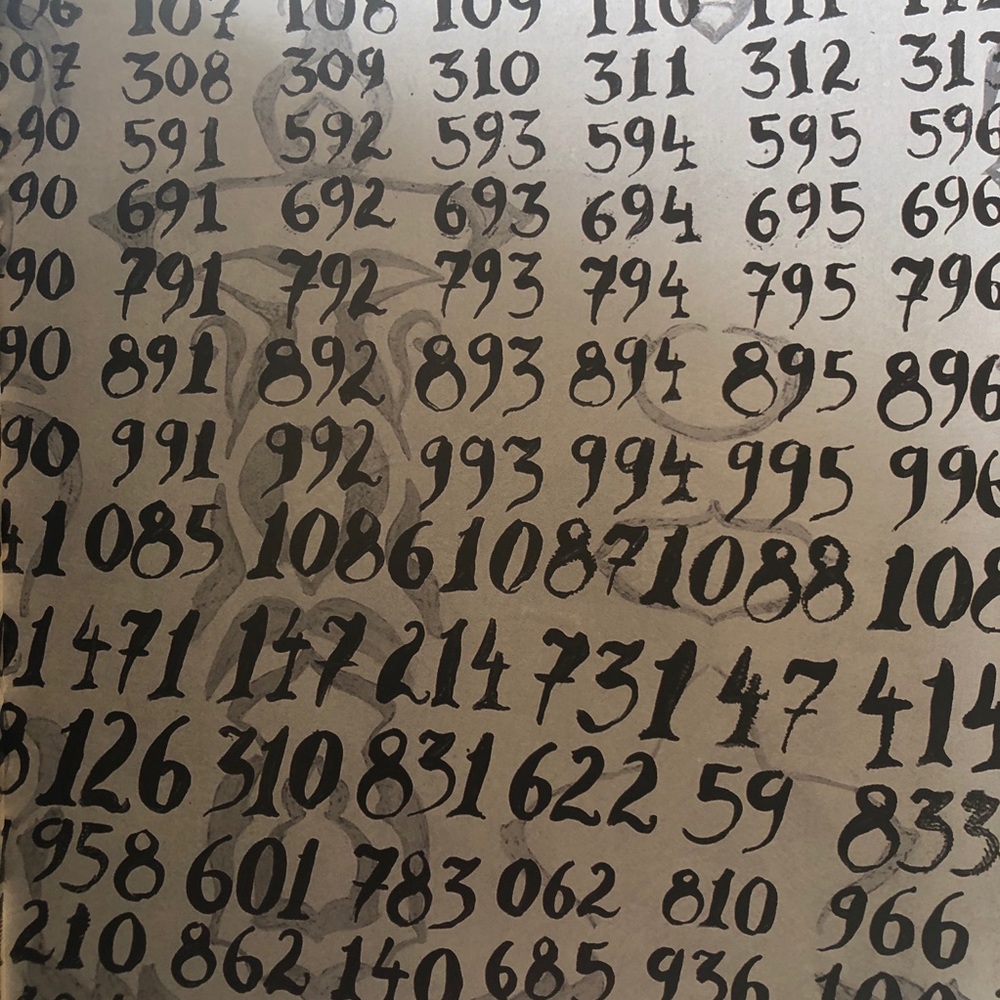 107 108 109 110 111
308 309 310 311 312 313
590 591 592 593 594 595 596
691 692 693 694 695 696
791 792 793 794 795 796
891 892 893 894 895 896
991 992 993 994 995 996
1085 1086 1087 1088
1471 147 214 731 47 414
126 310 831 622 59 833
958 601 783 062 810 966
210 862 140 685 936